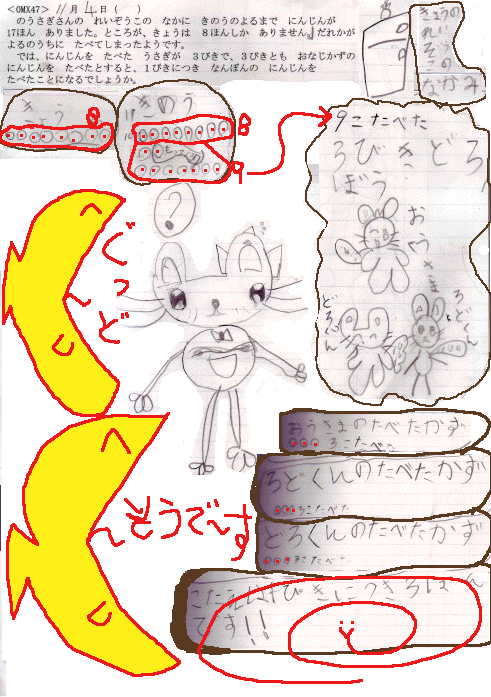 <OMX47> 11月 4日 ( )
のうさぎさんの れいぞうこの なかに きのうのよるまで にんじんが
17ほん ありました。ところが、きょうは 8ほんしか ありません。だれかが
よるのうちに たべてしまったようです。
では、にんじんを たべた うさぎが 3びきで、3びきとも おなじかずの
にんじんを たべたとすると、1びきにつき なんぼんの にんじんを
たべたことになるでしょうか。
きょうの
れいぞうこの
なかみ
きょう 8
きのう
8
9
9こたべた
3びきどろ
ぼう
おうさま
どろくん
ろどくん
?
ぐっど
そうで〜す
おうさまのたべたかず
3こたべた
ろどくんのたべたかず
3こたべた
どろくんのたべたかず
3こたべた
こたえは1ぴきにつき3ぼん
です!!